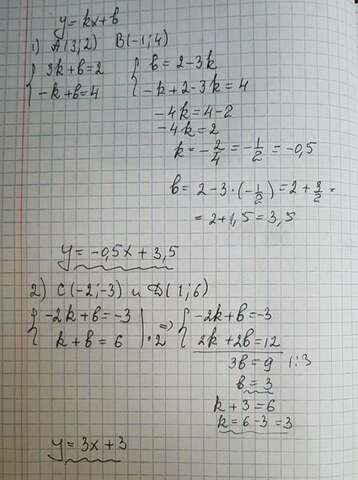 y = kx + b
1) A(3;2) B(-1;4)
{ 3k+b=2
-k+b=4
{ b = 2-3k
-k+2-3k=4
-4k=4-2
-4k=2
k=-2/4=-1/2=-0,5
b = 2-3·(-1/2)=2+3/2=
=2+1,5=3,5
y=-0,5x+3,5
2) C(-2;-3) и D(1;6)
{ -2k+b=-3
k+b=6 |·2 =>
{ -2k+b=-3
2k+2b=12
3b=9 |:3
b=3
k+3=6
k=6-3=3
y=3x+3